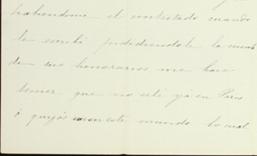 habiendome el contestado cuando
le escribi pidiendole la cuenta
de sus honorarios me hace
temer que no esté ya en Paris
ó quizás en este mundo lo cual